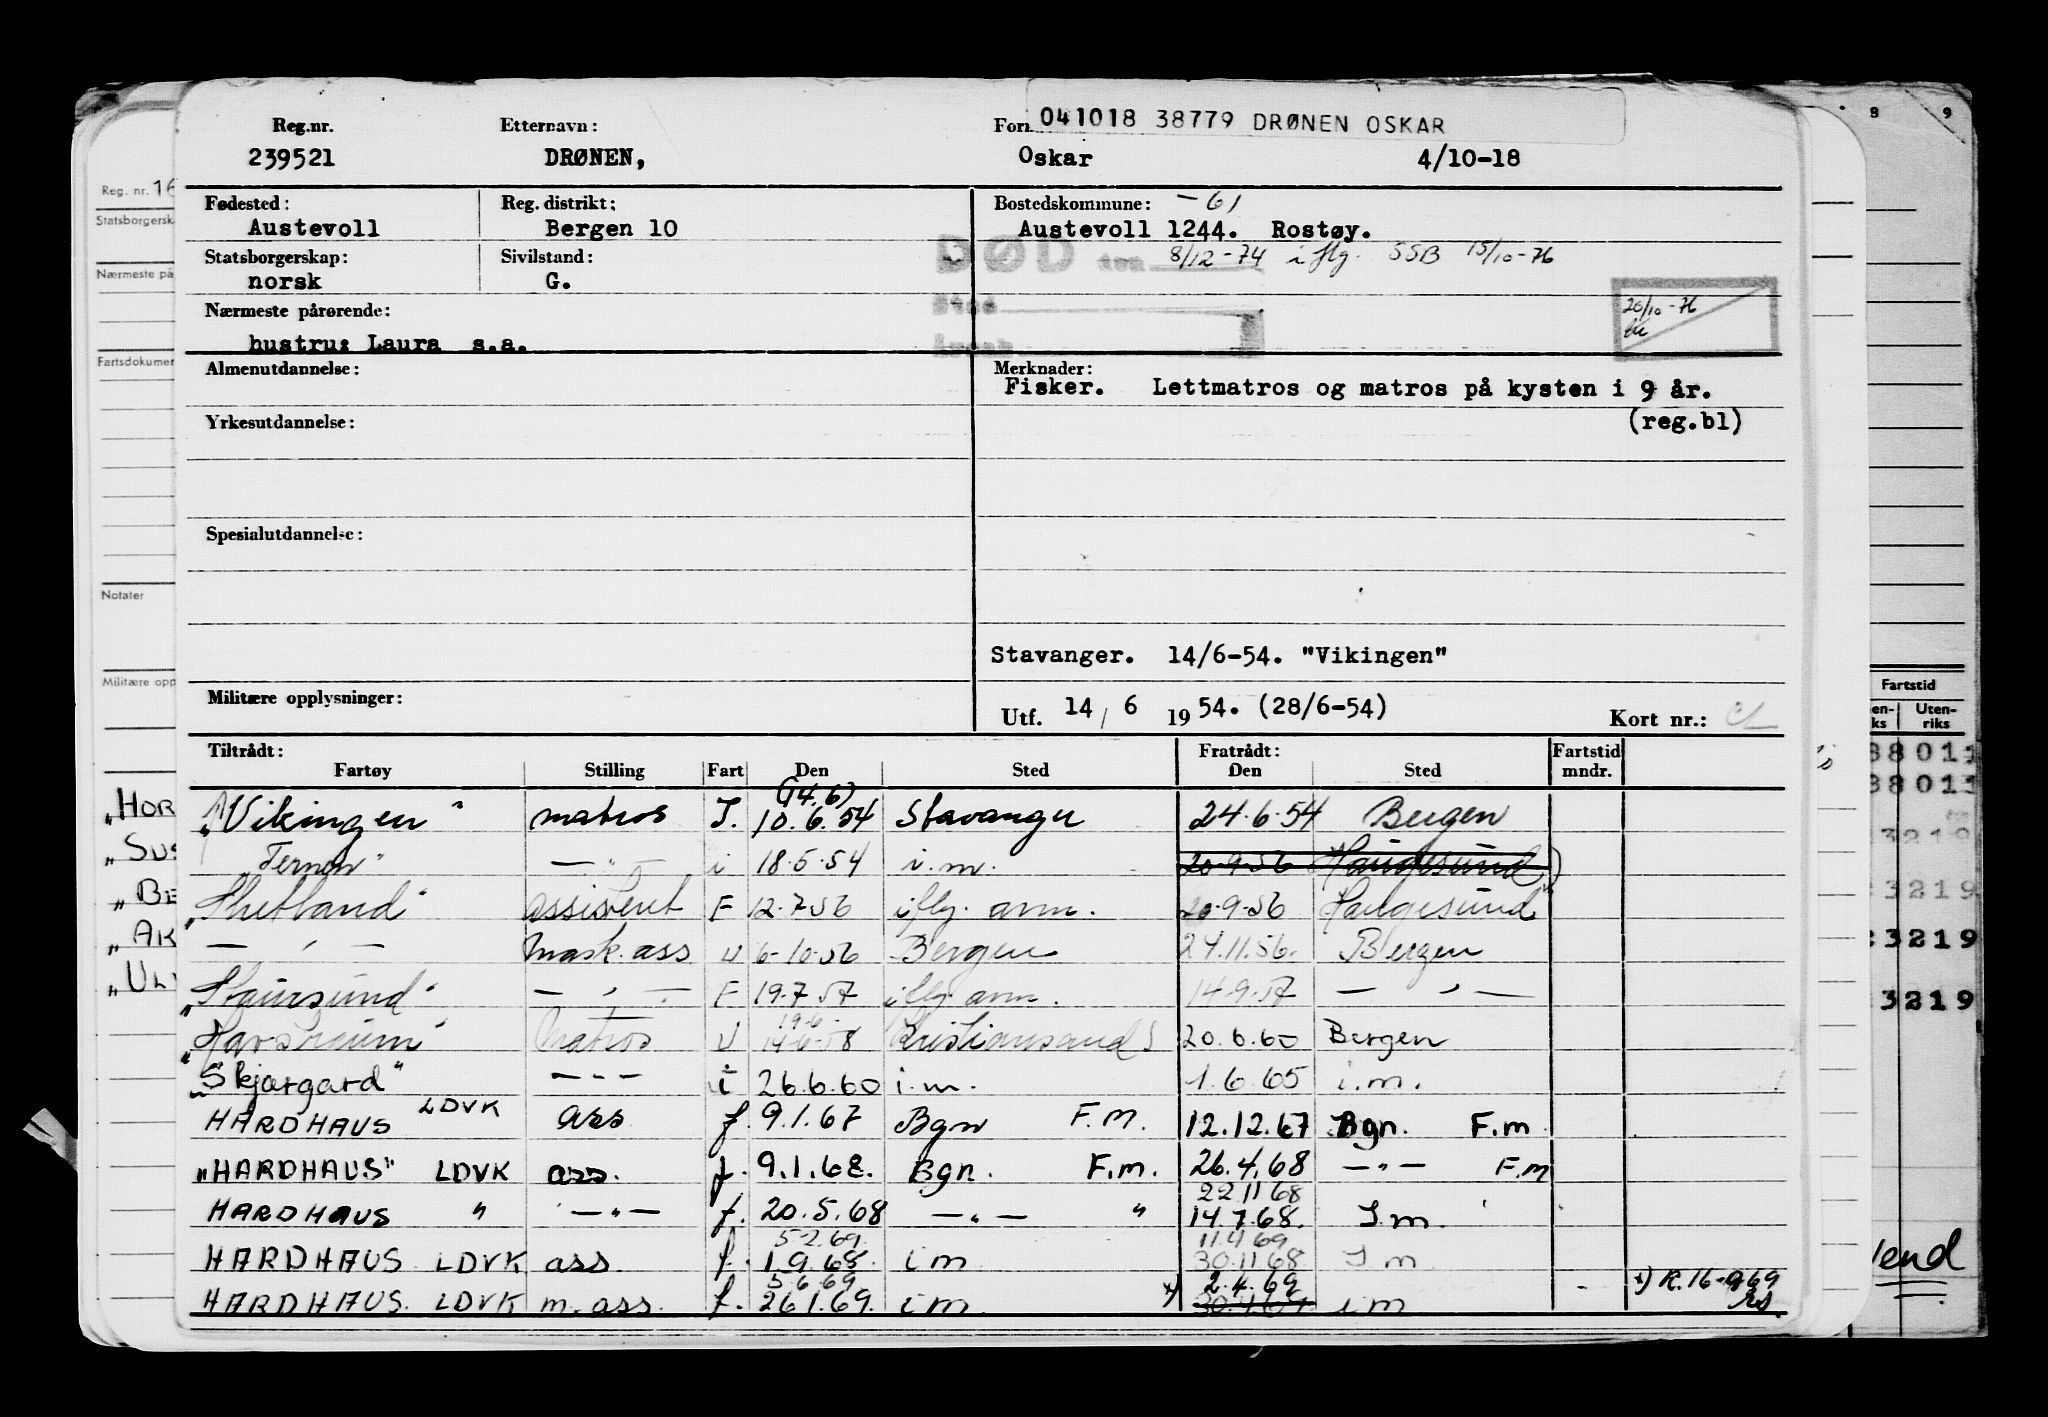 041018 38779 DRØNEN OSKAR
Reg.nr. Etternavn: Forn
239521 DRØNEN, Oskar 4/10-18
Fødested: Reg. distrikt: Bostedskommune: -61
Austevoll Bergen 10 Austevoll 1244. Rostøy.
Statsborgerskap: Sivilstand: DØD den 8/12-74 i flg. SSB 15/10-76
norsk G.
Nærmeste pårørende: Sted 20/10-76
hustru: Laura s.a.
Almenutdannelse: Merknader:
Fisker. Lettmatros og matros på kysten i 9 år.
Yrkesutdannelse: (reg.bl)
Spesialutdannelse:
Stavanger. 14/6-54. "Vikingen"
Militære opplysninger: Utf. 14/6 1954. (28/6-54) Kort nr.:
Tiltrådt: Fratrådt: Fartstid
Fartøy Stilling Fart Den Sted Den Sted mndr.
(14.6)
"Vikingen" matros I. 10.6.54 Stavanger 24.6.54 Bergen
"Ternen" — " — i 18.5.54 i.m. 20.9.56 Haugesund
"Shetland" assistent F 12.7.56 iflg. anm. 20.9.56 Haugesund
— " — Mask.ass U 6-10-56 Bergen 24.11.56. Bergen
"Staursund" — " — F 19.7.57 iflg. anm. 14.9.57 — " —
19-6-
"Havstraum" Matros U 14-6-58 Kristiansand S 20.6.60 Bergen
"Skjærgard" — - — i 26.6.60 i.m. 1.6.65 i.m.
HARDHAUS LDVK ass f. 9.1.67 Bgn F.M. 12.12.67 Bgn. F.m
"HARDHAUS" LDVK ass. f. 9.1.68. Bgn. F.m. 26.4.68 — " — F.m
22.11 68
HARDHAUS " — " — f. 20.5.68 — " — " 14.7.68. I.m.
5.2.69. 11.4 69
HARDHAUS LDVK ass. f. 1.9.68. i m 30.11 68 I m
5 6 69 2.4.69
HARDHAUS. LDVK m.ass. f. 26 1.69. i m *) i m *) R.16-9-69
Reg. nr. 16
Statsborgersk
Nærmeste på
Fartsdokumen
Notater
Militære opp
"HOR
"SUS
"BE
"AK
"ULV
8 9
Fartstid
en-ks Uten-riks
38011
38011
3219
3219
3219
3219
Vend